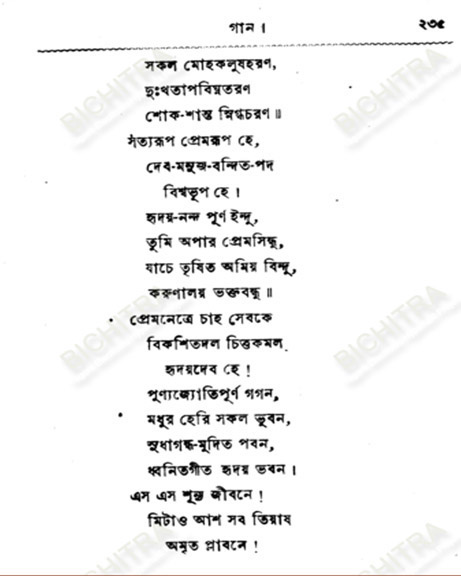 গান ।
২৩৫
সকল মোহকলুষহরণ,
দুঃখতাপবিঘ্নতরণ
শোক-শান্ত স্নিগ্ধচরণ ॥
সত্যরূপ প্রেমরূপ হে,
দেব-মনুজ-বন্দিত-পদ
বিশ্বভূপ হে ।
হৃদয়-নন্দ পূর্ণ ইন্দু,
তুমি অপার প্রেমসিন্ধু,
যাচে তৃষিত অমিয় বিন্দু,
করুণালয় ভক্তবন্ধু ॥
প্রেমনেত্রে চাহ সেবকে
বিকশিতদল চিত্তকমল
হৃদয়দেব হে !
পুণ্যজ্যোতিপূর্ণ গগন,
মধুর হেরি সকল ভুবন,
সুধাগন্ধ-মুদিত পবন,
ধ্বনিতগীত হৃদয় ভবন ।
এস এস শূন্য জীবনে !
মিটাও আশ সব তিয়াষ
অমৃত প্লাবনে !
BICHITRA
BICHITRA
BICHITRA
BICHITRA
BICHITRA
BICHITRA